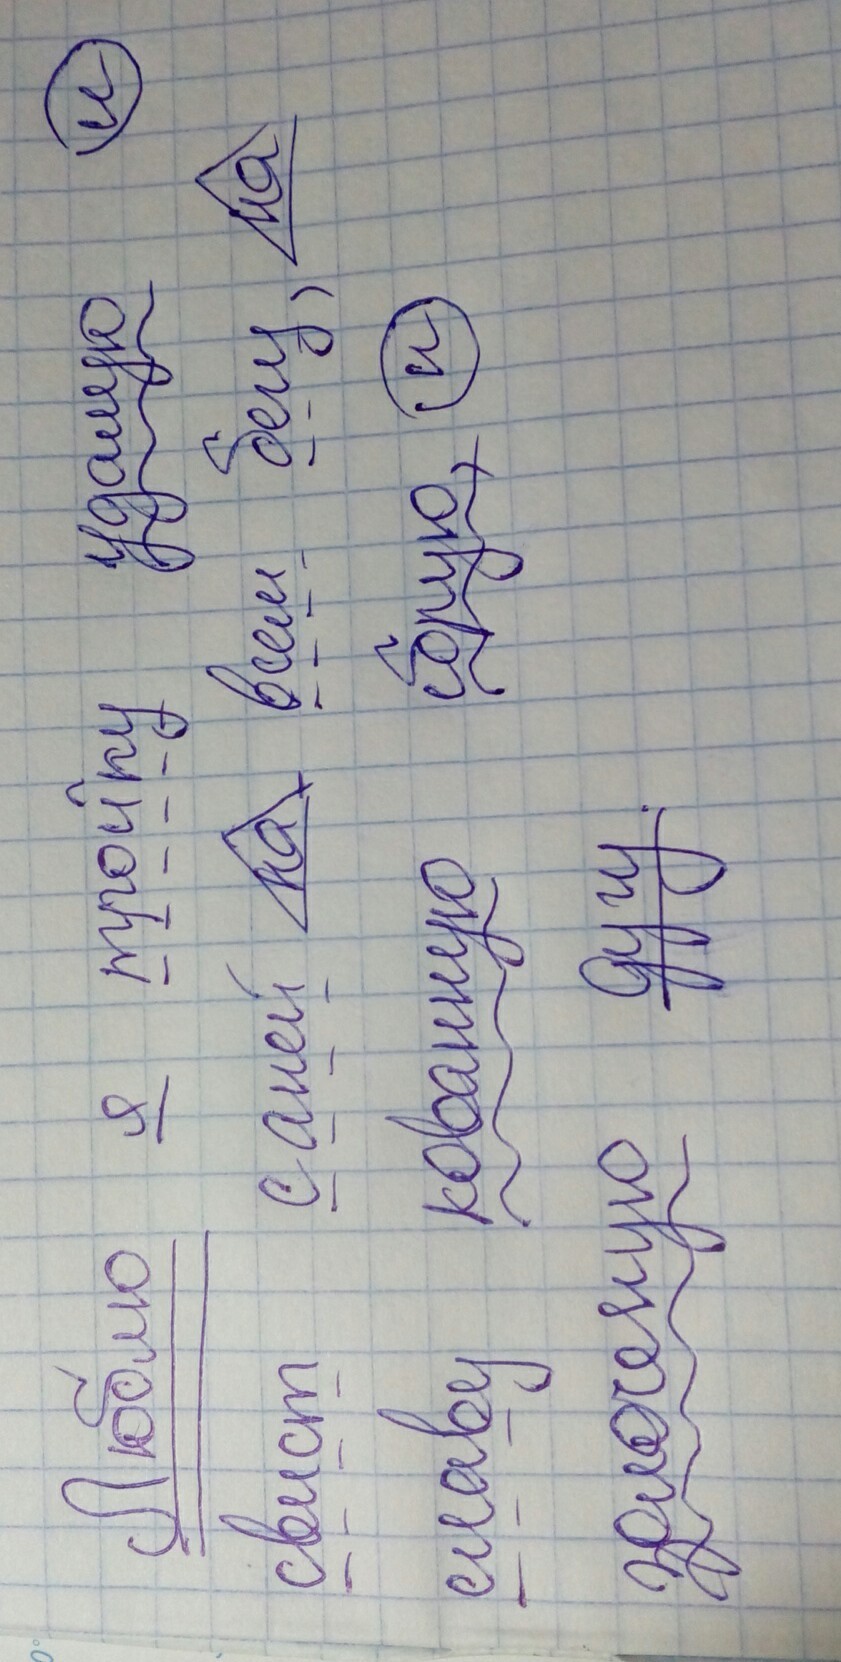 Люблю я тройку удалую и
свист саней на всем бегу, на
славу кованную сбрую, и
золоченую дугу.